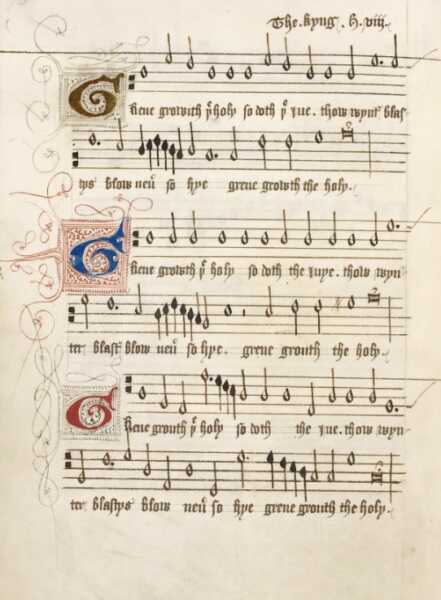 The . kyng . H . viij .
Grene growith yͤ holy so doth yͤ iue . thow wynt blas
tys blow neu̾ so hye grene growth the holy .
Grene growth yͤ holy so doth the iuye . thow wyn
ter blast blow neu̾ so hye . grene grouth the holy
Grene grouth yͤ holy so doth the iue . thow wyn-
ter blastys blow neu̾ so hye grene grouth the holy .